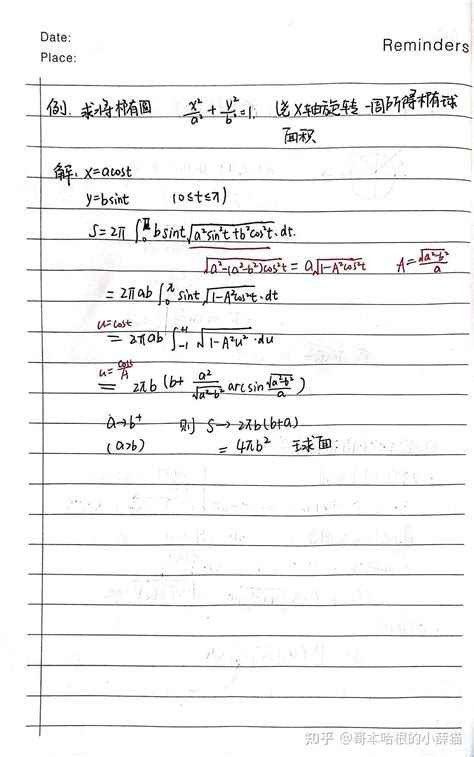 Date:
Place:
Reminders
例. 求将椭圆 x²/a² + y²/b² = 1. 绕X轴旋转一周所得椭球
面积
解: x=acost
y=bsint (0≤t≤π)
S=2π ∫₀^π bsint√(a²sin²t+b²cos²t)·dt.
√(a²-(a²-b²)cos²t) = a√(1-A²cos²t) A=√(a²-b²)/a
= 2πab ∫₀^π sint√(1-A²cos²t)·dt
u=cost
= 2πab ∫₋₁^+1 √(1-A²u²)·du
u=cost/A
= 2πb (b+ a²/√(a²-b²) arcsin √(a²-b²)/a)
a→b⁺ 则 S→2πb(b+a)
(a>b) = 4πb² 球面.
知乎 @哥本哈根的小薛猫